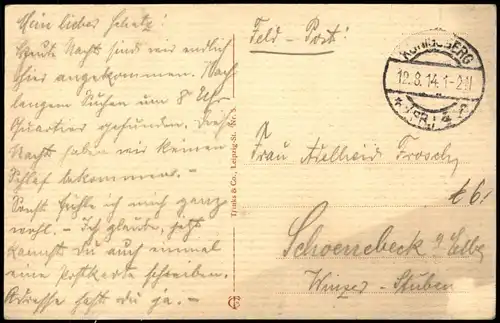 Mein lieber Schatz!
Heute Nacht sind wir endlich
hier angekommen. Nach
langem Suchen um 8 Uhr
Quartier gefunden. Drei
Nachts haben wir keinen
Schlaf bekommen. –
Sonst fühle ich mich ganz
wohl. – Ich glaube, jetzt
kannst Du auch einmal
eine Postkarte schreiben.
Adresse hast Du ja. –
Trinks & Co., Leipzig-St. Nr. 5.
Feld – Post!
KÖNIGSBERG
12.8.14. 1-2N
* (PR) 4 *
Frau Adelheid Frosch
Schoenebeck a/Elbe
Winzer – Stuben